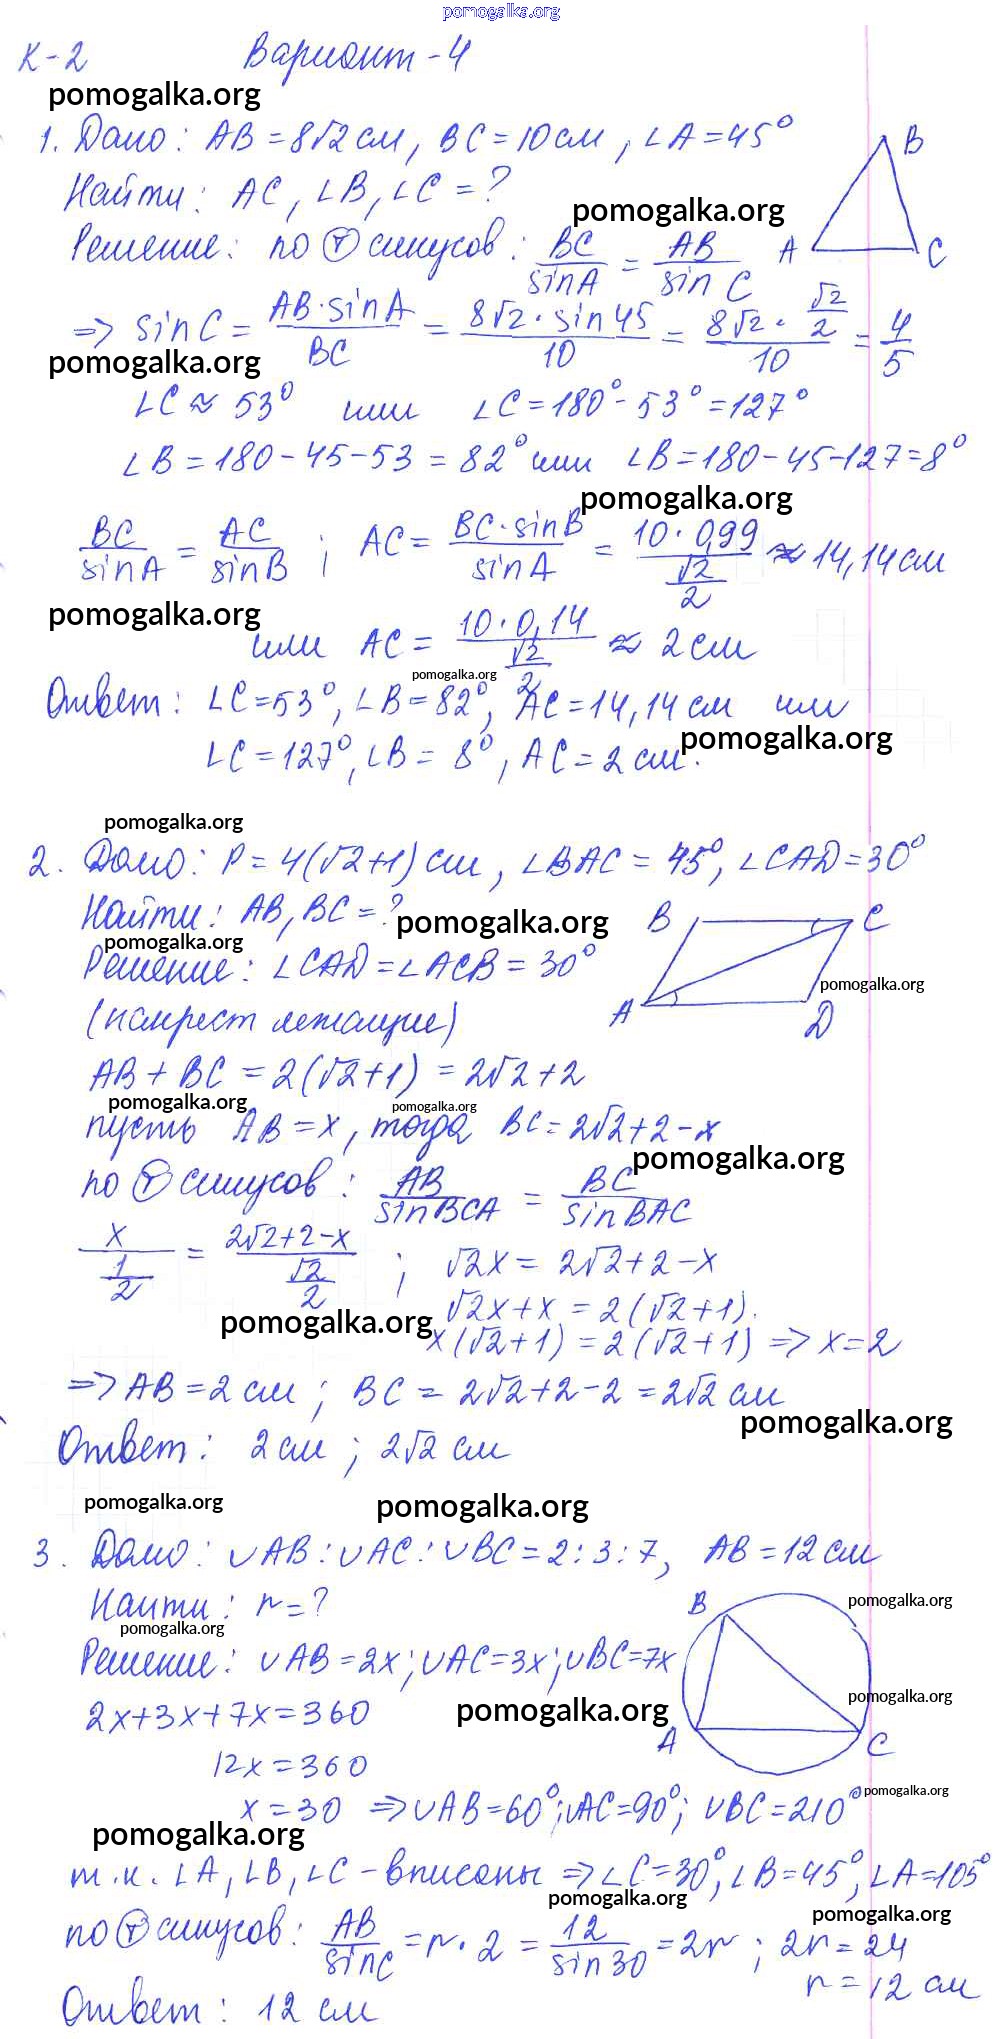 pomogalka.org
К-2 Вариант-4
pomogalka.org
1. Дано: AB = 8√2 см, BC = 10 см, ∠A = 45°
Найти: AC, ∠B, ∠C = ?
pomogalka.org
Решение: по Ⓣ синусов: BC/sinA = AB/sin C
B
A
C
=> sin C = AB·sinA/BC = 8√2·sin45/10 = 8√2·√2/2/10 = 4/5
pomogalka.org
∠C ≈ 53° или ∠C = 180° - 53° = 127°
∠B = 180 - 45 - 53 = 82° или ∠B = 180 - 45 - 127 = 8°
pomogalka.org
BC/sinA = AC/sinB ; AC = BC·sinB/sinA = 10·0,99/√2/2 ≈ 14,14 см
pomogalka.org
или AC = 10·0,14/√2/2 ≈ 2 см
pomogalka.org
Ответ: ∠C = 53°, ∠B = 82°, AC = 14,14 см или
pomogalka.org
∠C = 127°, ∠B = 8°, AC = 2 см.
pomogalka.org
2. Дано: P = 4(√2+1) см, ∠BAC = 45°, ∠CAD = 30°
Найти: AB, BC = ?
pomogalka.org
B
C
pomogalka.org
Решение: ∠CAD = ∠ACB = 30°
pomogalka.org
A
D
(накрест лежащие)
AB + BC = 2(√2+1) = 2√2+2
pomogalka.org
pomogalka.org
пусть AB = x, тогда BC = 2√2+2-x
pomogalka.org
по Ⓣ синусов: AB/sinBCA = BC/sinBAC
x/1/2 = 2√2+2-x/√2/2 ; √2x = 2√2+2-x
√2x+x = 2(√2+1).
pomogalka.org
x(√2+1) = 2(√2+1) => x = 2
=> AB = 2 см ; BC = 2√2+2-2 = 2√2 см
pomogalka.org
Ответ: 2 см ; 2√2 см
pomogalka.org
pomogalka.org
3. Дано: ∪AB : ∪AC : ∪BC = 2 : 3 : 7, AB = 12 см
Найти: r = ?
B
pomogalka.org
pomogalka.org
Решение: ∪AB = 2x; ∪AC = 3x; ∪BC = 7x
pomogalka.org
2x+3x+7x = 360
pomogalka.org
A
C
12x = 360
pomogalka.org
x = 30 => ∪AB = 60°; ∪AC = 90°; ∪BC = 210°
pomogalka.org
т.к. ∠A, ∠B, ∠C - вписаны => ∠C = 30°, ∠B = 45°, ∠A = 105°
pomogalka.org
pomogalka.org
по Ⓣ синусов: AB/sinC = r·2 = 12/sin30 = 2r ; 2r = 24
r = 12 см
Ответ: 12 см